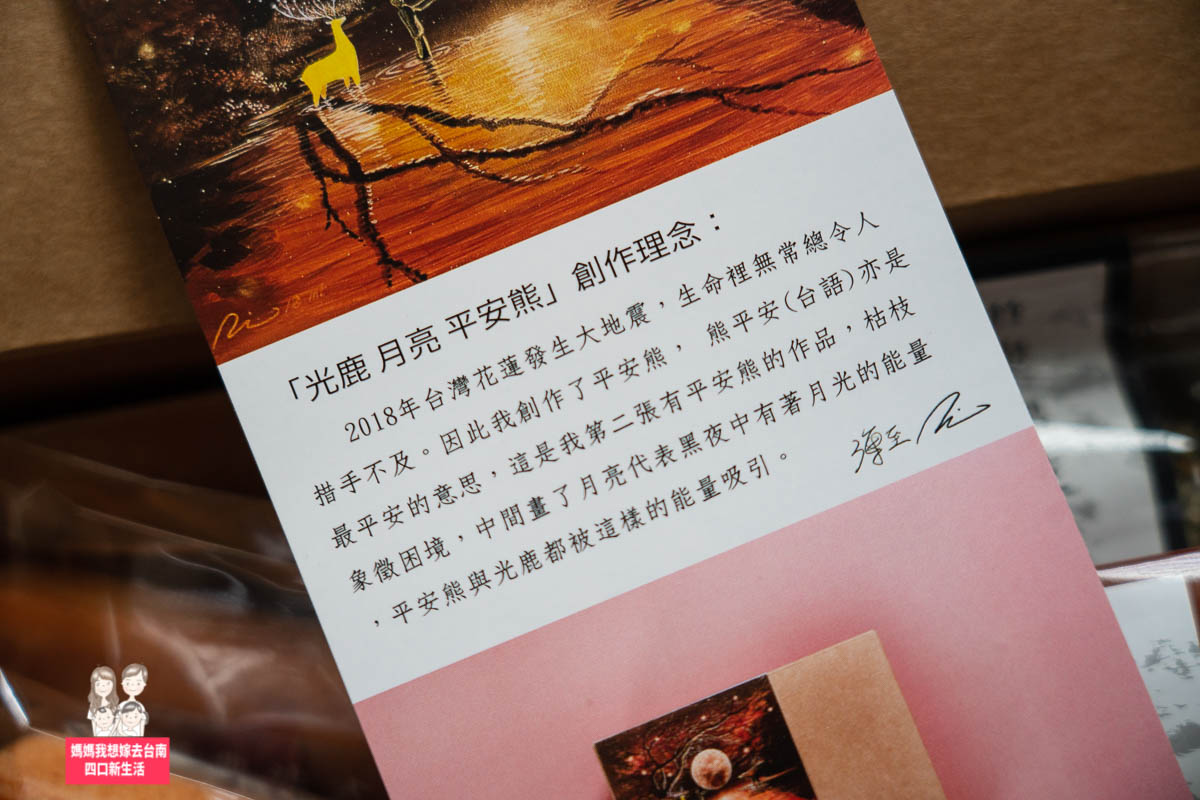 「光鹿 月亮 平安熊」創作理念：
2018年台灣花蓮發生大地震，生命裡無常總令人
措手不及。因此我創作了平安熊， 熊平安(台語)亦是
最平安的意思，這是我第二張有平安熊的作品，枯枝
象徵困境，中間畫了月亮代表黑夜中有著月光的能量
，平安熊與光鹿都被這樣的能量吸引。
媽媽我想嫁去台南
四口新生活